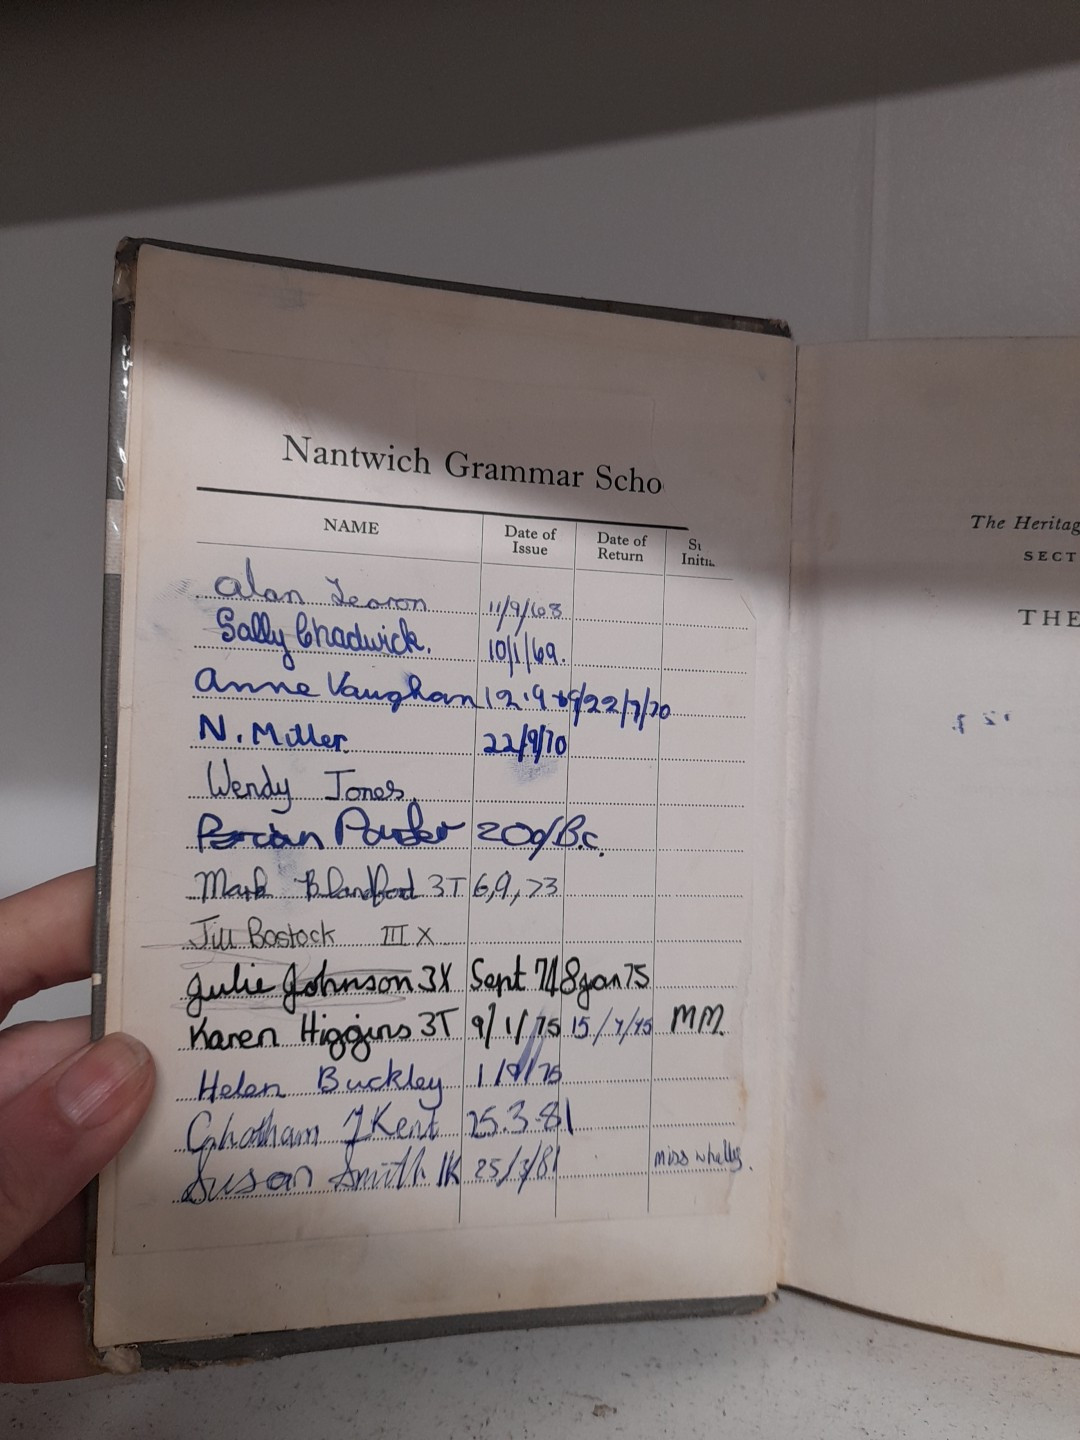 Nantwich Grammar Scho
NAME Date of Issue Date of Return Initi
Alan 11/9/68
Sally Chadwick. 10/1/69.
Anne Vaughan 12.9.69 22/7/70
N. Miller 22/9/70
Wendy Jones.
Brian Parker 200/B.c.
Mark Blandford 3T 6,9,73
Jill Bostock III X
Julie Johnson 3X Sept 74 8 Jan 75
Karen Higgins 3T 9/1/75 15/7/75 MM.
Helen Buckley 1/9/75
Kent 25.3.81
Susan Smith 1K 25/3/81 miss whally.
The Heritag
SECT
THE